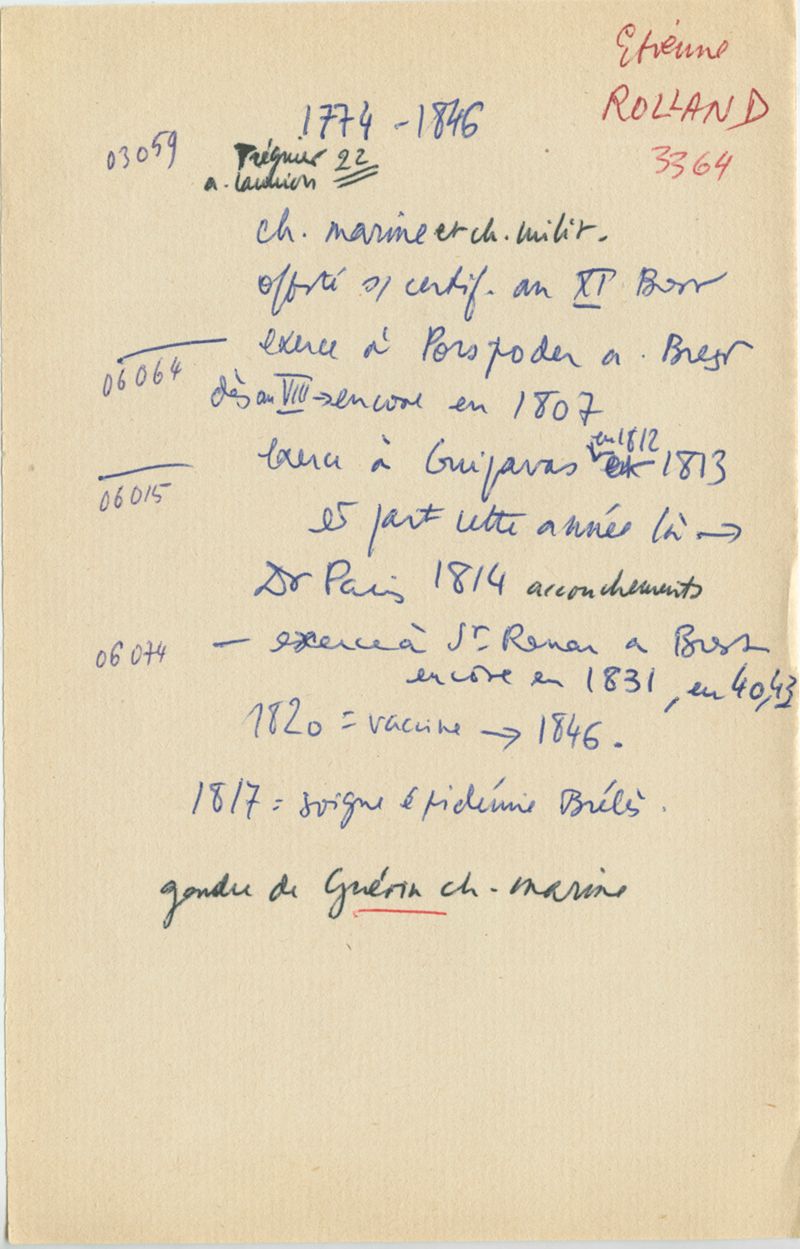 Etienne
ROLLAND
3364
1774 - 1846
03059
Tréguier 22
a. Lannion
ch. marine et ch. milit.
offsté s/ certif. an XI Brest
exerce à Porspoder a. Brest
06064
dès an VIII → encore en 1807
exerce à Guipavas en 1812 et 1813
06015
et part cette année là →
Dr Paris 1814 accouchements
06074
— exerce à St Renan a Brest
encore en 1831, en 40, 43
1820 = vaccine → 1846.
1817 = soigne épidémie Brélès.
gendre de Guérin ch. marine